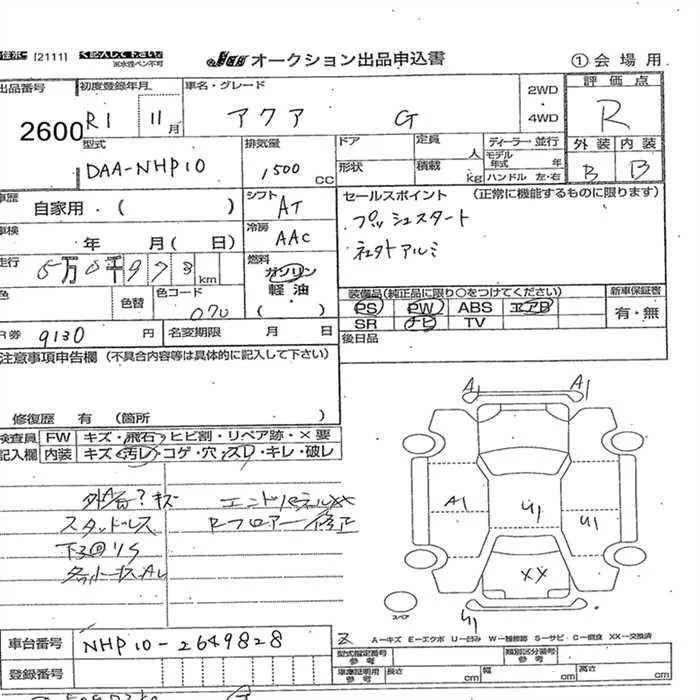 [2111]
く記入して下さい
※水性ペン不可
オークション出品申込書
①会場用
出品番号
2600
初度登録年月
R1 11月
車名・グレード
アクア G
2WD
4WD
評価点
R
外装 内装
B B
型式
DAA-NHP10
排気量
1500 CC
ドア
形状
定員 人
積載 kg
ディーラー・並行
モデル年式 年
ハンドル 左・右
車歴
自家用・( )
シフト
AT
セールスポイント (正常に機能するものに限ります)
プッシュスタート
社外アルミ
車検
年 月( 日)
冷房
AAC
走行
5万0千973km
燃料
ガソリン
軽・油
( )
色
色替
色コード
070
装備品(純正品に限り○をつけてください)
PS PW ABS エアB
SR ナビ TV
新車保証書
有・無
R券 9130円
名変期限 月 日
後日品
注意事項申告欄 (不具合内容等は具体的に記入して下さい)
修復歴 有 (箇所 )
検査員
記入欄
FW キズ・飛石・ヒビ割・リペア跡・×要
内装 キズ・汚レ・コゲ・穴・スレ・キレ・破レ
スタッドレス
Rフロアー修正
A1 A1
A1 U1 U1
XX
U1
スペア
A−キズ E−エクボ U−凹み W−補修跡 S−サビ C−腐食 XX−交換済
車台番号
NHP10-2649828
登録番号
型式指定番号
参考
類別区分番号
参考
車庫証明用
参考
長さ cm 幅 cm 高さ cm